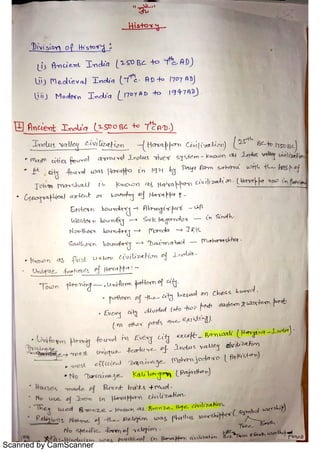 "ॐ"
History
Division of History :
(i) Ancient India (2500 BC to 7th C AD)
(ii) Medieval India (7th C. AD to 1707 AD)
(iii) Modern India (1707 AD to 1947 AD)
1 Ancient India (2500 BC to 7th C AD.)
Indus valley civilization - (Harappan Civilization) [25th BC to 1750 BC]
• Most cities found around Indus river system - known as Indus valley civilization
• 1st city found was Harappa in 1921 by Daya Ram Sahani with the help of
John Marshall is known as Harappan Civilization (Harappa now in
• Geographical extent or boundry of Harappa :-
Eastern boundry → Alamgirpur - UP
Western boundry → Sutkagendor - in Sindh
Northern boundry → Manda → J&K
Southern boundry → Daimabad - Maharashtra.
• Known as first urban civilization of India.
- Unique features of Harappa :-
Town planning - • Uniform pattern of city.
• pattern of the city based on Chess board.
• Every city divided into two parts eastern & western part
(no other parts are existing).
• Uniform planning found in Every city except - Banwali (Haryana - India).
Drainage → most unique feature of Indus valley civilization
• most efficient Drainage Mohenjodaro (Pakistan)
• No Drainage Kalibangan (Rajasthan)
• Houses made of Burnt bricks + mud.
• No use of Iron in Harappan civilization.
• They used Bronze - known as Bronze age civilization
• Religion Nature of the Religion was phallus worshipper (symbol worship)
No specific form of religion. Tree, Earth
Hinduism was practised in Harappan civilization
Scanned by CamScanner